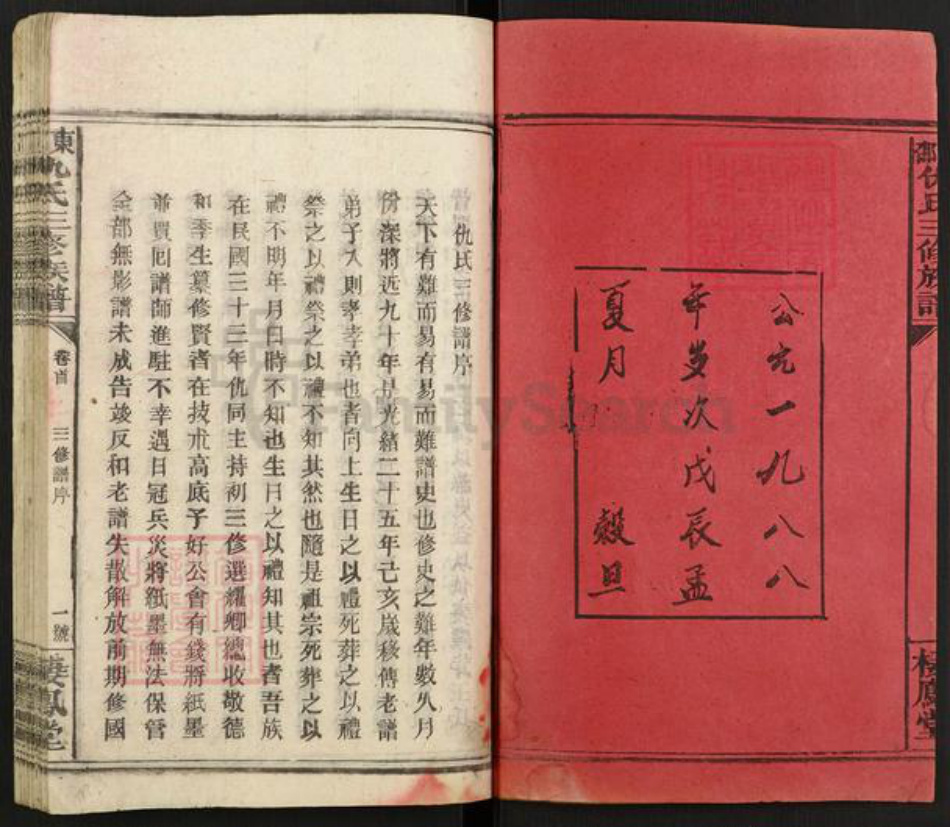 公元一九八八
年岁次戊辰孟
夏月 穀旦
仇氏三修族譜
棲鳳堂
仇氏三修譜序
天下有難而易有易而難譜史也修史之難年數久月
份深將近九十年是光緒二十五年己亥歲移傳老譜
弟子入則孝孝弟也者向上生日之以禮死葬之以禮
祭之以禮祭之以禮不知其然也隨是祖宗死葬之以
禮不明年月日時不知也生日之以禮知其也者吾族
在民國三十三年仇同主持初三修選耀卿總收敬德
和季生纂修賢者在技朮高底予好公會有錢將紙墨
並買囘譜師進駐不幸遇日冠兵災將紙墨無法保管
全部無影譜未成告竣反和老譜失散解放前期修國
東仇氏三修族譜
卷首
三修譜序
一號
棲鳳堂
FamilySearch